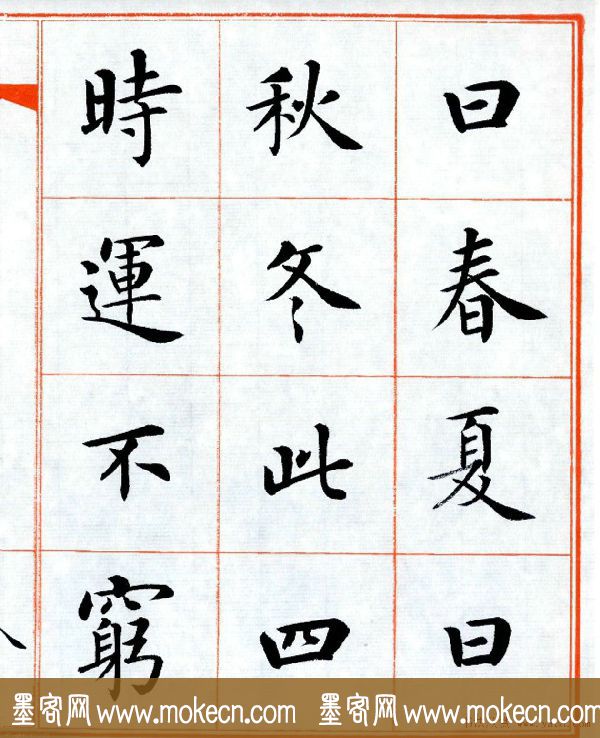 曰春夏曰
秋冬此四
時運不窮
墨客网 www.mokecn.com 墨客网 www.mokecn.com